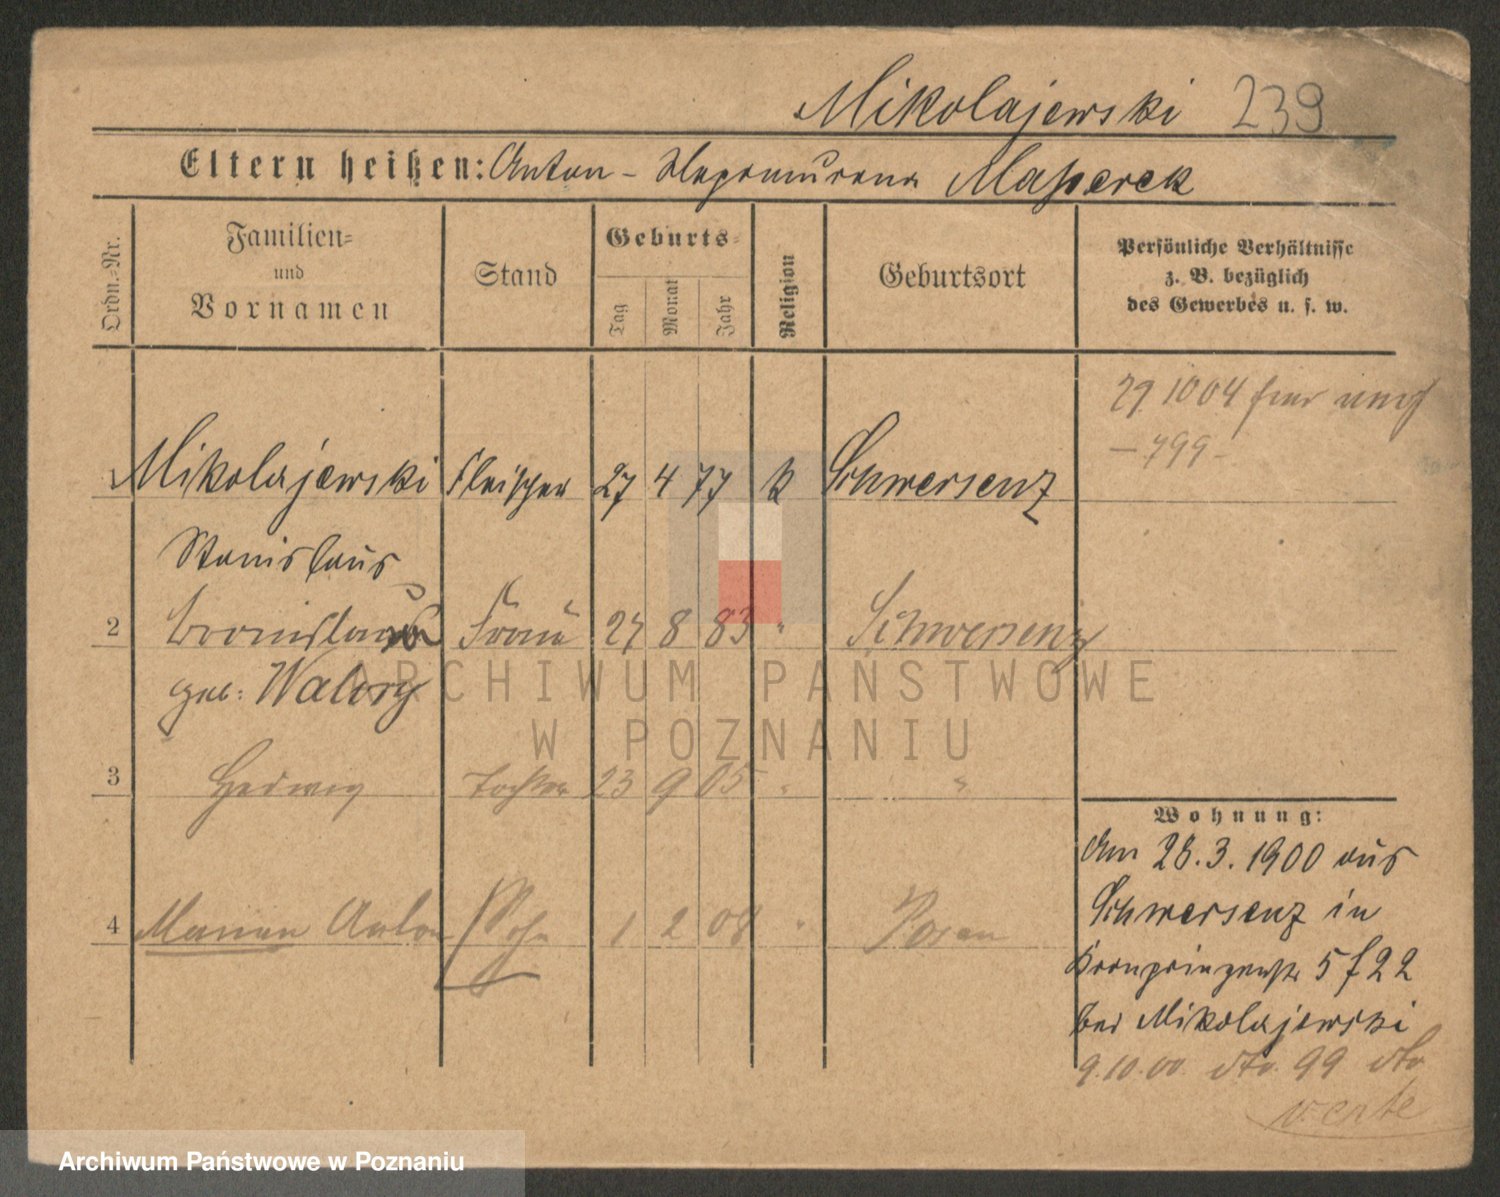 Mikolajewski 239
Eltern heißen: Anton - Nepomucena
Ordn.-Nr.
Familien-
und
Vornamen
Stand
Geburts-
Tag
Monat
Jahr
Religion
Geburtsort
Persönliche Verhältnisse
z. B. bezüglich
des Gewerbes u. s. w.
1 Mikolajewski Fleischer 27 4 77 k Schwersenz
Stanislaus
2 Bronislawa Frau 27 8 83 " Schwersenz
geb:
3 Hedwig Tochter 23 9 05 " "
4 Marian Anton Sohn 1 2 08 " Posen
Wohnung:
Am 28.3.1900 aus
Schwersenz in
Kronprinzenstr 5 f 22
bei Mikolajewski
9.10.00. dto. 99 dto
verte
ARCHIWUM PAŃSTWOWE
W POZNANIU
Archiwum Państwowe w Poznaniu